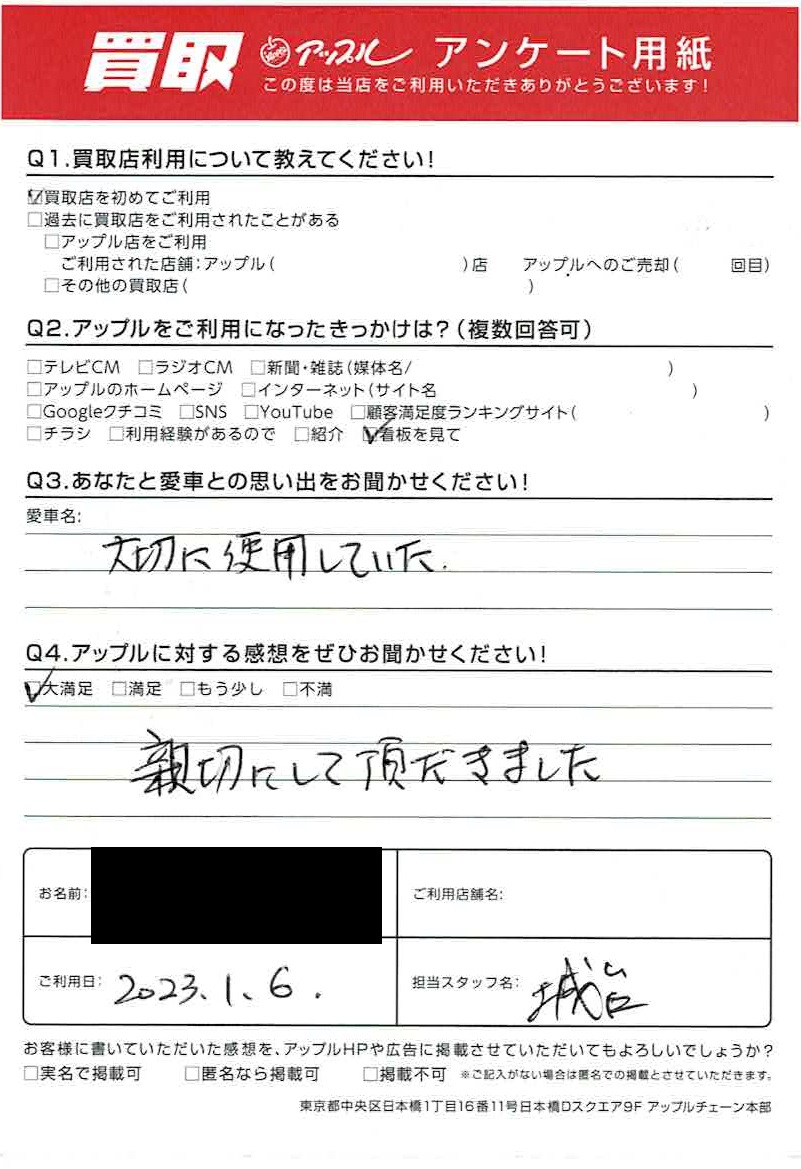 買取 アップル アンケート用紙
この度は当店をご利用いただきありがとうございます!
Q1.買取店利用について教えてください!
☑買取店を初めてご利用
□過去に買取店をご利用されたことがある
□アップル店をご利用
ご利用された店舗:アップル( )店 アップルへのご売却( 回目)
□その他の買取店( )
Q2.アップルをご利用になったきっかけは?(複数回答可)
□テレビCM □ラジオCM □新聞・雑誌(媒体名/ )
□アップルのホームページ □インターネット(サイト名 )
□Googleクチコミ □SNS □YouTube □顧客満足度ランキングサイト( )
□チラシ □利用経験があるので □紹介 ☑看板を見て
Q3.あなたと愛車との思い出をお聞かせください!
愛車名:
大切に使用していた.
Q4.アップルに対する感想をぜひお聞かせください!
☑大満足 □満足 □もう少し □不満
親切にして頂だきました
お名前: ご利用店舗名:
ご利用日: 2023.1.6. 担当スタッフ名:
お客様に書いていただいた感想を、アップルHPや広告に掲載させていただいてもよろしいでしょうか?
□実名で掲載可 □匿名なら掲載可 □掲載不可 ※ご記入がない場合は匿名での掲載とさせていただきます。
東京都中央区日本橋1丁目16番11号日本橋Dスクエア9F アップルチェーン本部